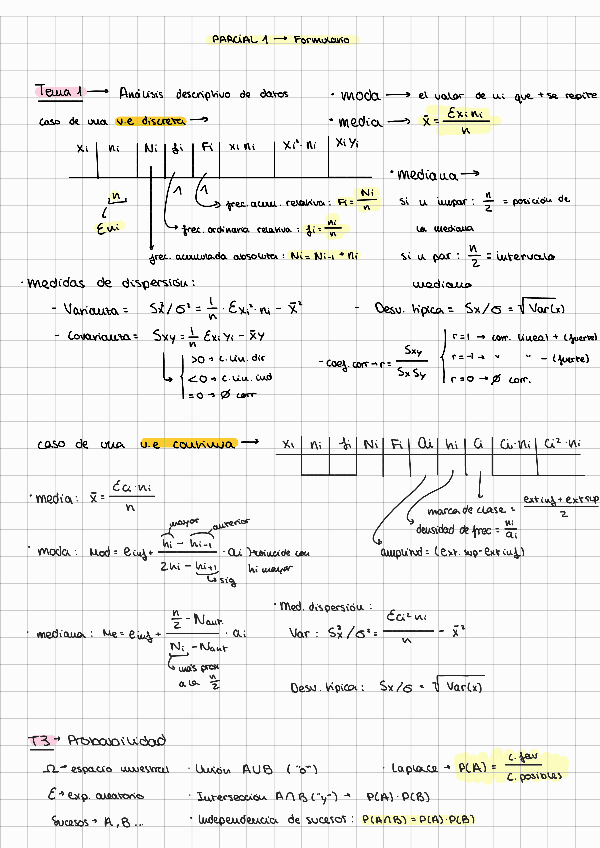 PARCIAL 1 → Formulario
Tema 1 → Análisis descriptivo de datos
caso de una v.e discreta →
xi | ni | Ni | fi | Fi | xi ni | xi² · ni | xi yi
n
Σni
frec. acum. relativa : Fi = Ni/n
frec. ordinaria relativa : fi = ni/n
frec. acumulada absoluta : Ni = Ni-1 + ni
· moda → el valor de ni que + se repite
· media → x̄ = Σxi ni / n
· mediana →
si n impar : n/2 = posición de
la mediana
si n par : n/2 = intervalo
mediano
· medidas de dispersión :
- Varianza = Sx²/σ² = 1/n · Σxi² · ni - x̄²
- Covarianza = Sxy = 1/n Σxi yi - x̄ȳ
>0 → c. lin. dir
<0 → c. lin. ind
=0 → Ø corr
- Desv. típica = Sx/σ = √Var(x)
- coef. corr → r = Sxy / Sx Sy
r=1 → corr. lineal + (fuerte)
r=-1 → " " - (fuerte)
r=0 → Ø corr.
caso de una v.e continua →
xi | ni | fi | Ni | Fi | ai | hi | ci | ci · ni | ci² · ni
marca de clase = ext inf + ext sup / 2
densidad de frec = ni/ai
amplitud = (ext. sup - ext inf)
· media : x̄ = Σci · ni / n
mayor anterior
· moda : Mod = einf + hi - hi-1 / 2hi - hi+1 · ai → coincide con
hi mayor
sig
· mediana : Me = einf + n/2 - Nant / Ni - Nant · ai
más prox
a la n/2
· Med. dispersión :
Var : Sx²/σ² = Σci² ni / n - x̄²
Desv. típica : Sx/σ = √Var(x)
T3 → Probabilidad
Ω → espacio muestral
E → exp. aleatorio
Sucesos → A, B ...
· Unión A∪B ("o")
· Intersección A∩B ("y") → P(A) · P(B)
· Independencia de sucesos : P(A∩B) = P(A) · P(B)
· Laplace → P(A) = c. fav / c. posibles